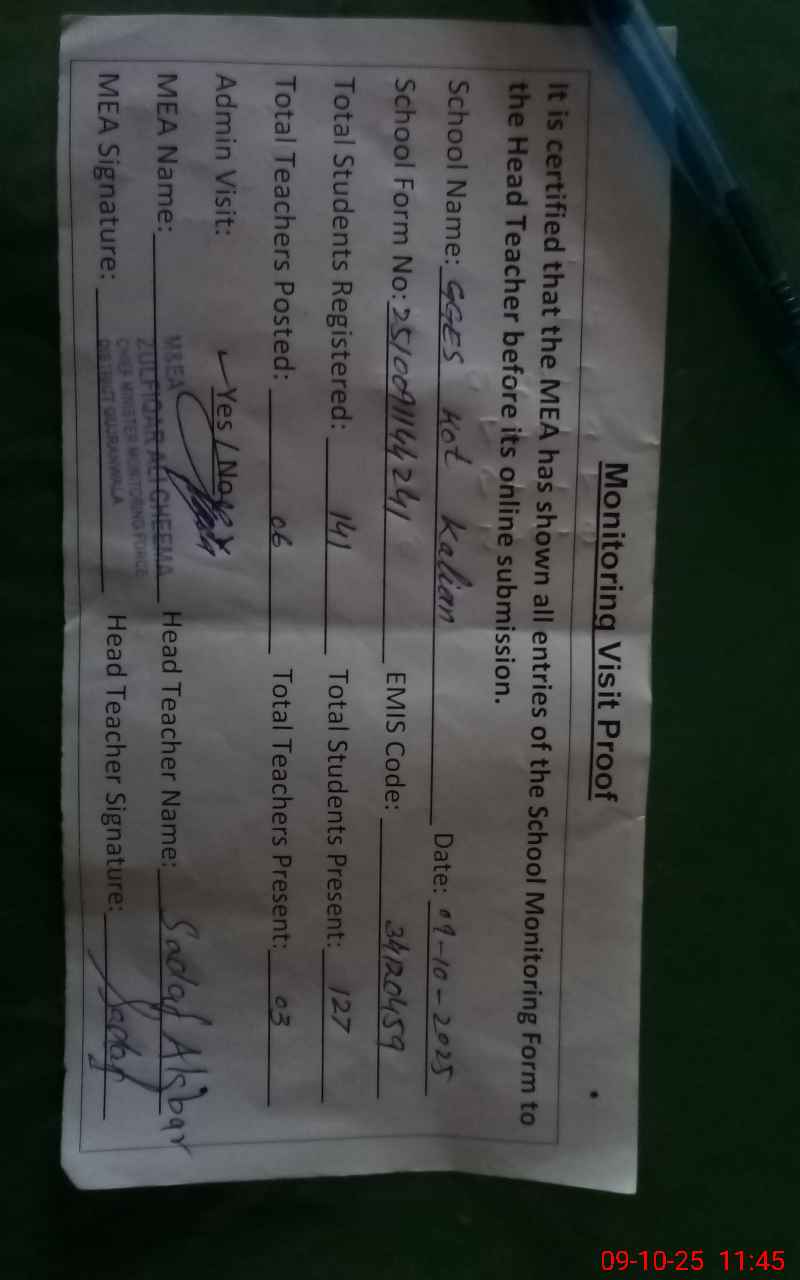 Monitoring Visit Proof
It is certified that the MEA has shown all entries of the School Monitoring Form to
the Head Teacher before its online submission.
School Name: GGES Kot Kalian Date: 09-10-2025
School Form No: 25/0091144241 EMIS Code: 34120459
Total Students Registered: 141 Total Students Present: 127
Total Teachers Posted: 06 Total Teachers Present: 03
Admin Visit: ✓ Yes / No
MEA Name: Head Teacher Name: Sadaf Akbar
MEA Signature: Head Teacher Signature: Sadaf
M&EA
ZULFIQAR ALI CHEEMA
CHIEF MINISTER MONITORING FORCE
DISTRICT GUJRANWALA
09-10-25 11:45